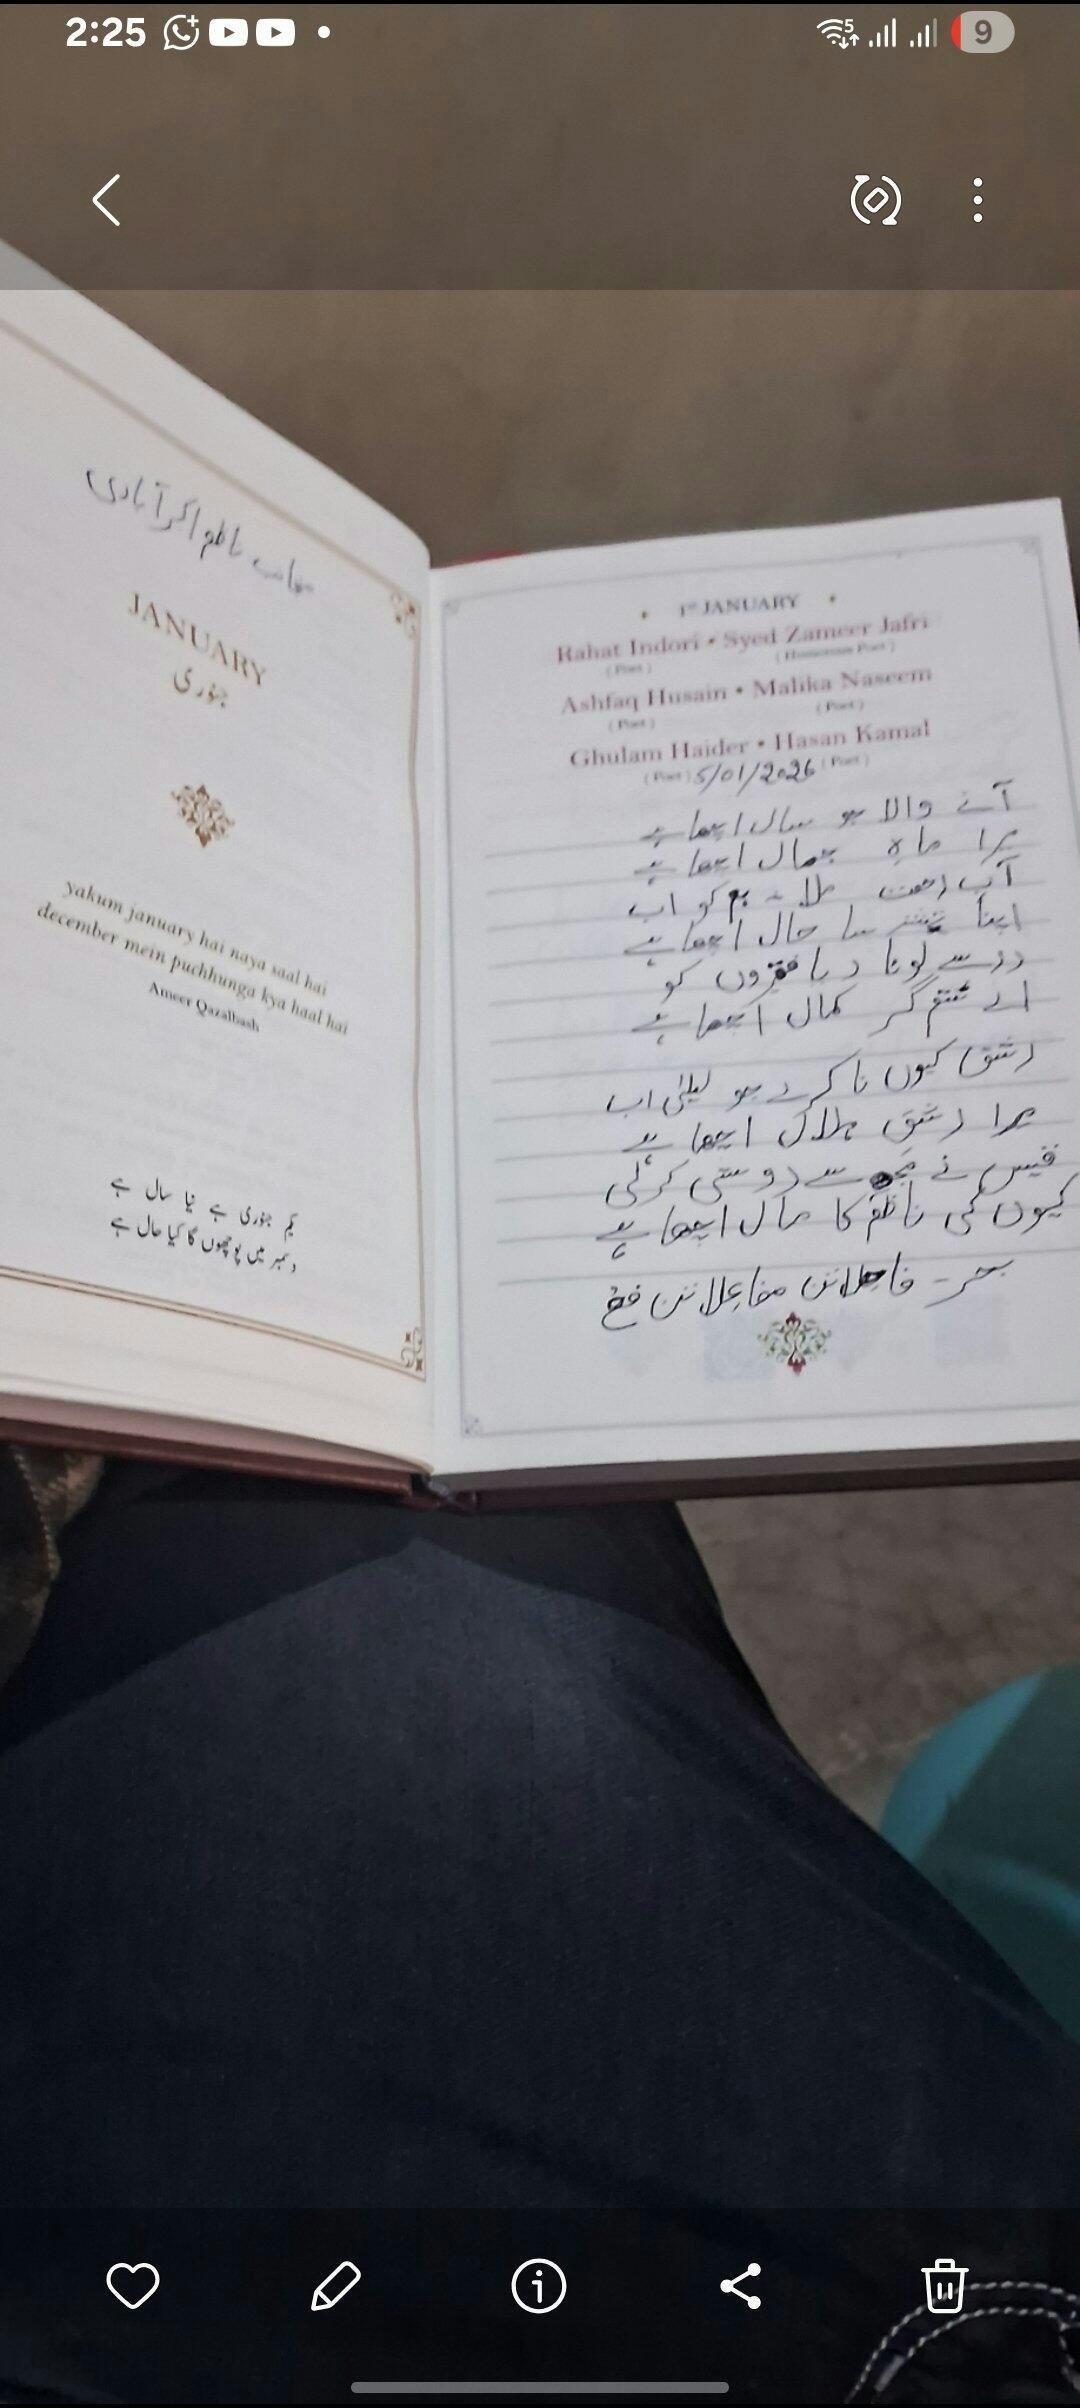 2:25
9
جناب ناظم اکبرآبادی
JANUARY
جنوری
yakum january hai naya saal hai
december mein puchhunga kya haal hai
Ameer Qazalbash
یکم جنوری ہے نیا سال ہے
دسمبر میں پوچھوں گا کیا حال ہے
1st JANUARY
Rahat Indori • Syed Zameer Jafri
(Poet) (Humorous Poet)
Ashfaq Husain • Malika Naseem
(Poet) (Poet)
Ghulam Haider • Hasan Kamal
(Poet) 5/01/2026 (Poet)
آنے والا جو سال اچھا ہے
مرا ماہِ جمال اچھا ہے
آپ ملا ہم کو اب
اپنا سا حال اچھا ہے
در سے لوٹا دیا فقیروں کو
اے ستم گر کمال اچھا ہے
رشق کیوں نا کرے جو لیلیٰ اب
مرا رشقِ ہلال اچھا ہے
قیس نے مجھ سے دوستی کر لی
کیوں کی ناظم کا حال اچھا ہے
بحر - فاعلاتن مفاعلاتن فع